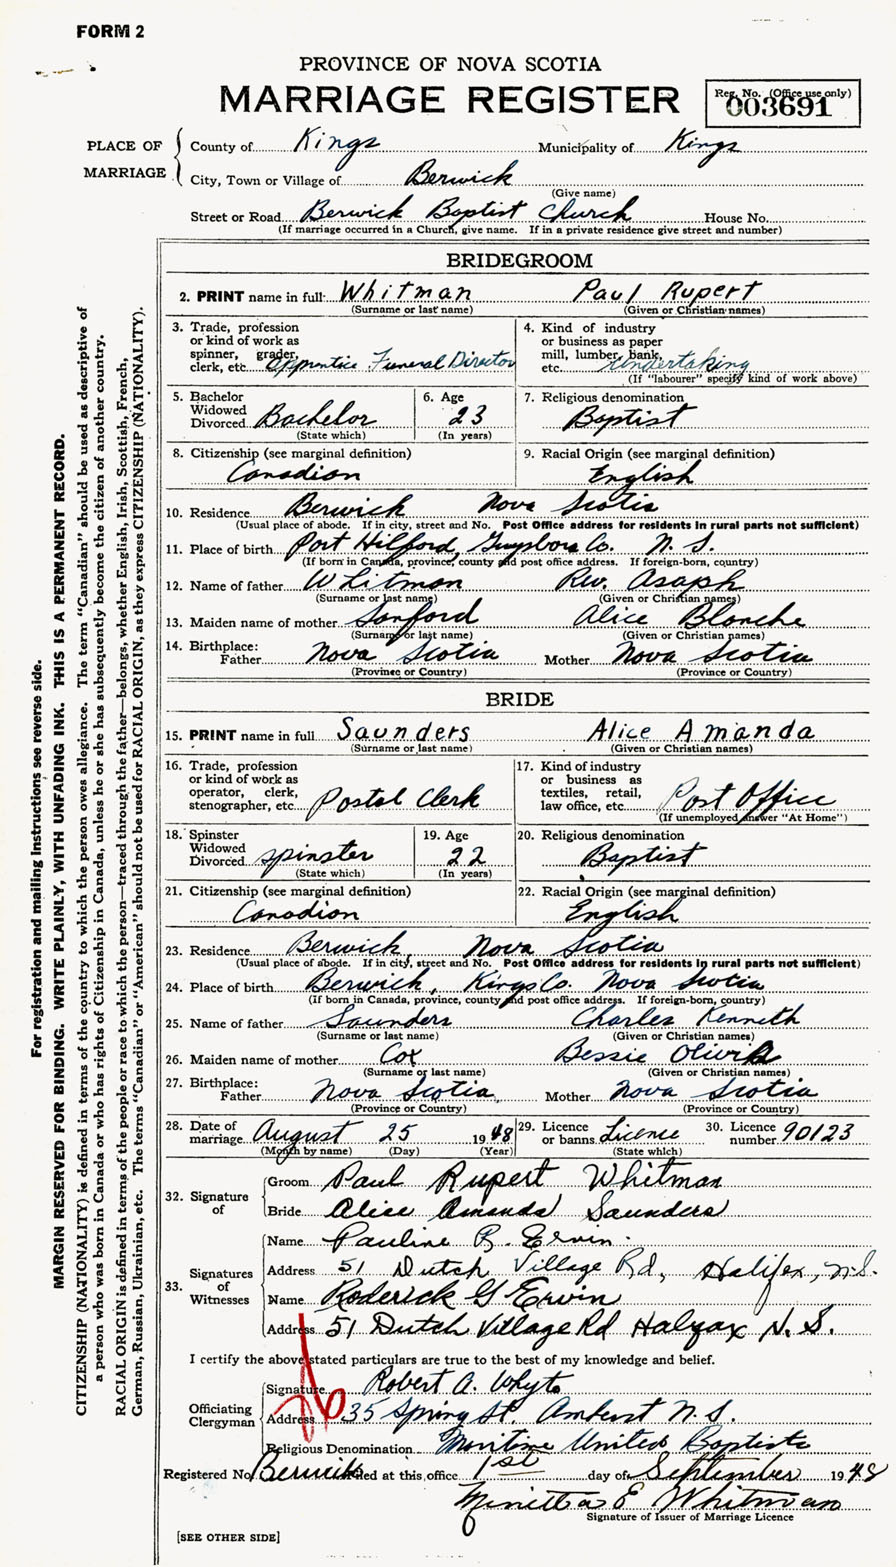 FORM 2
PROVINCE OF NOVA SCOTIA
MARRIAGE REGISTER
Reg. No. (Office use only)
003691
PLACE OF MARRIAGE
County of Kings Municipality of Kings
City, Town or Village of Berwick
(Give name)
Street or Road Berwick Baptist Church House No.
(If marriage occurred in a Church, give name. If in a private residence give street and number)
BRIDEGROOM
2. PRINT name in full Whitman Paul Rupert
(Surname or last name) (Given or Christian names)
3. Trade, profession or kind of work as spinner, grader, clerk, etc. Apprentice Funeral Director
4. Kind of industry or business as paper mill, lumber, bank, etc. Undertaking
(If "labourer" specify kind of work above)
5. Bachelor Widowed Divorced Bachelor
(State which)
6. Age 23
(In years)
7. Religious denomination
Baptist
8. Citizenship (see marginal definition)
Canadian
9. Racial Origin (see marginal definition)
English
10. Residence Berwick Nova Scotia
(Usual place of abode. If in city, street and No. Post Office address for residents in rural parts not sufficient)
11. Place of birth Port Hilford, Guysboro Co. N. S.
(If born in Canada, province, county and post office address. If foreign-born, country)
12. Name of father Whitman Rev. Asaph
(Surname or last name) (Given or Christian names)
13. Maiden name of mother Sanford Alice Blanche
(Surname or last name) (Given or Christian names)
14. Birthplace:
Father Nova Scotia Mother Nova Scotia
(Province or Country) (Province or Country)
BRIDE
15. PRINT name in full Saunders Alice Amanda
(Surname or last name) (Given or Christian names)
16. Trade, profession or kind of work as operator, clerk, stenographer, etc. Postal Clerk
17. Kind of industry or business as textiles, retail, law office, etc. Post Office
(If unemployed answer "At Home")
18. Spinster Widowed Divorced spinster
(State which)
19. Age 22
(In years)
20. Religious denomination
Baptist
21. Citizenship (see marginal definition)
Canadian
22. Racial Origin (see marginal definition)
English
23. Residence Berwick, Nova Scotia
(Usual place of abode. If in city, street and No. Post Office address for residents in rural parts not sufficient)
24. Place of birth Berwick, Kings Co. Nova Scotia
(If born in Canada, province, county and post office address. If foreign-born, country)
25. Name of father Saunders Charles Kenneth
(Surname or last name) (Given or Christian names)
26. Maiden name of mother Cox Bessie
(Surname or last name) (Given or Christian names)
27. Birthplace:
Father Nova Scotia Mother Nova Scotia
(Province or Country) (Province or Country)
28. Date of marriage August 25 1948
(Month by name) (Day) (Year)
29. Licence or banns Licence
(State which)
30. Licence number 90123
32. Signature of
Groom Paul Rupert Whitman
Bride Alice Amanda Saunders
33. Signatures of Witnesses
Name Pauline R. Ervin
Address 51 Dutch Village Rd, Halifax, N.S.
Name Roderick G Ervin
Address 51 Dutch Village Rd Halifax N. S.
I certify the above stated particulars are true to the best of my knowledge and belief.
Officiating Clergyman
Signature Robert A. Whyte
Address 35 Spring St. Amherst N.S.
Religious Denomination Maritime United Baptists
Registered No. Berwick at this office 1st day of September 1948
Minetta E Whitman
Signature of Issuer of Marriage Licence
[SEE OTHER SIDE]
For registration and mailing instructions see reverse side.
MARGIN RESERVED FOR BINDING. WRITE PLAINLY, WITH UNFADING INK. THIS IS A PERMANENT RECORD.
CITIZENSHIP (NATIONALITY) is defined in terms of the country to which the person owes allegiance. The term "Canadian" should be used as descriptive of
a person who was born in Canada or who has rights of Citizenship in Canada, unless he or she has subsequently become the citizen of another country.
RACIAL ORIGIN is defined in terms of the people or race to which the person—traced through the father—belongs, whether English, Irish, Scottish, French,
German, Russian, Ukrainian, etc. The terms "Canadian" or "American" should not be used for RACIAL ORIGIN, as they express CITIZENSHIP (NATIONALITY).